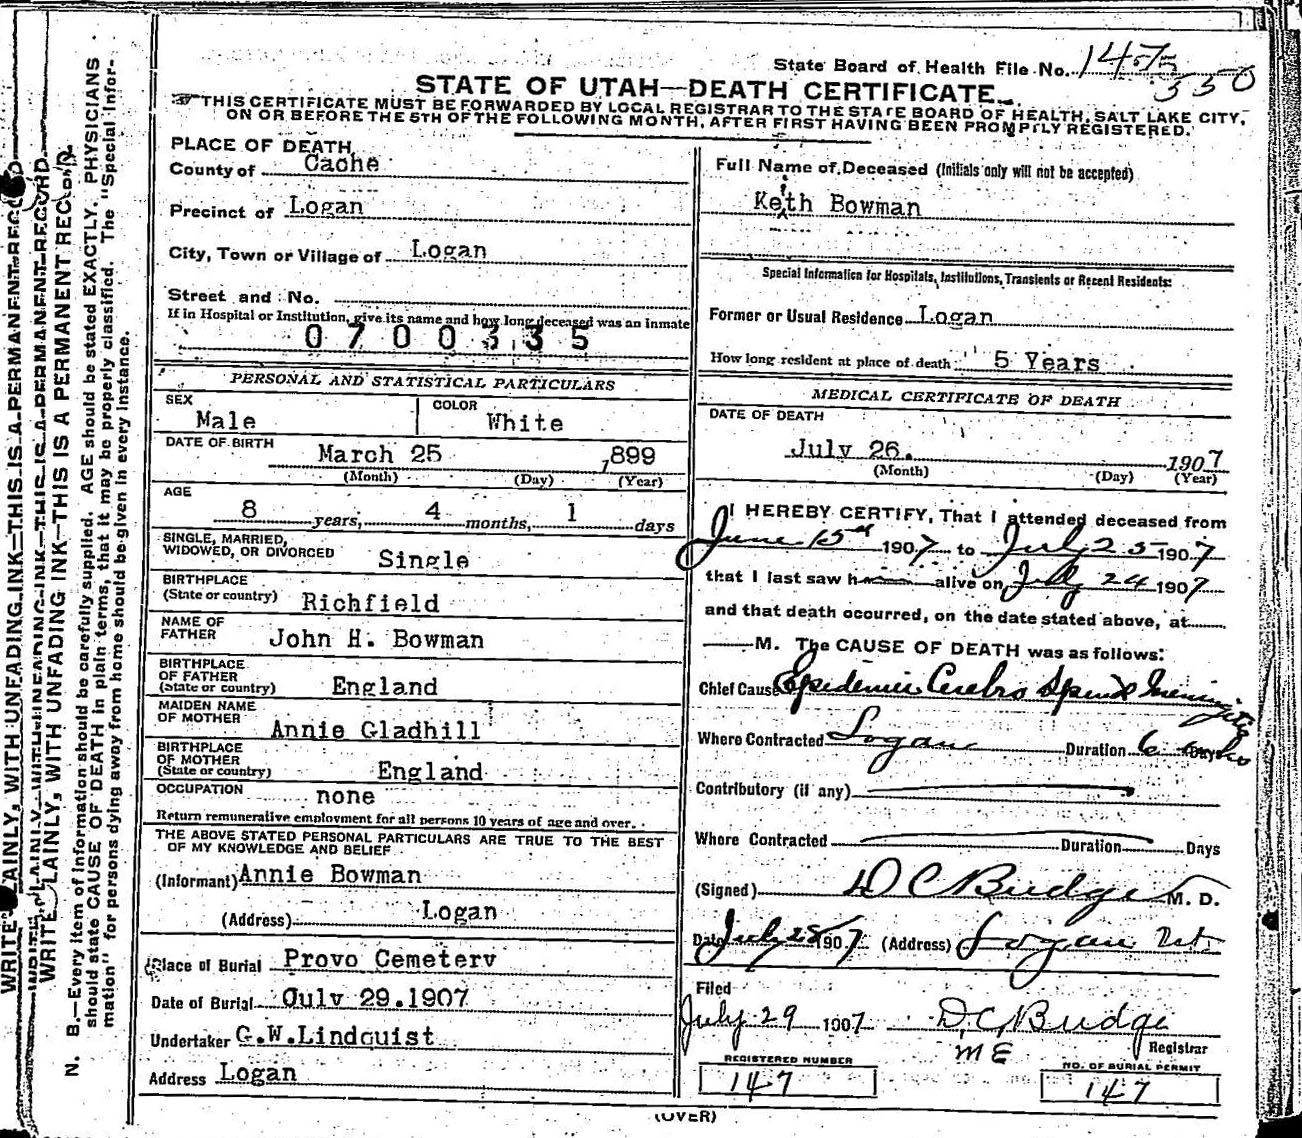 State Board of Health File No. 1475
350
STATE OF UTAH—DEATH CERTIFICATE
THIS CERTIFICATE MUST BE FORWARDED BY LOCAL REGISTRAR TO THE STATE BOARD OF HEALTH, SALT LAKE CITY,
ON OR BEFORE THE 5TH OF THE FOLLOWING MONTH, AFTER FIRST HAVING BEEN PROMPTLY REGISTERED.
PLACE OF DEATH
County of Cache
Precinct of Logan
City, Town or Village of Logan
Street and No.
If in Hospital or Institution, give its name and how long deceased was an inmate
0700335
PERSONAL AND STATISTICAL PARTICULARS
SEX Male
COLOR White
DATE OF BIRTH March 25 1899
(Month) (Day) (Year)
AGE
8 years, 4 months, 1 days
SINGLE, MARRIED,
WIDOWED, OR DIVORCED Single
BIRTHPLACE
(State or country) Richfield
NAME OF
FATHER John H. Bowman
BIRTHPLACE
OF FATHER
(State or country) England
MAIDEN NAME
OF MOTHER Annie Gladhill
BIRTHPLACE
OF MOTHER
(State or country) England
OCCUPATION none
Return remunerative employment for all persons 10 years of age and over.
THE ABOVE STATED PERSONAL PARTICULARS ARE TRUE TO THE BEST
OF MY KNOWLEDGE AND BELIEF
(Informant) Annie Bowman
(Address) Logan
Place of Burial Provo Cemetery
Date of Burial July 29.1907
Undertaker G.W.Lindquist
Address Logan
Full Name of Deceased (Initials only will not be accepted)
Keith Bowman
Special Information for Hospitals, Institutions, Transients or Recent Residents:
Former or Usual Residence Logan
How long resident at place of death 5 Years
MEDICAL CERTIFICATE OF DEATH
DATE OF DEATH
July 26. 1907
(Month) (Day) (Year)
I HEREBY CERTIFY, That I attended deceased from
June 15th 1907 to July 25 1907
that I last saw h alive on July 24 1907
and that death occurred, on the date stated above, at
M. The CAUSE OF DEATH was as follows:
Chief Cause Epidemic Cerebro Spinal Meningitis
Where Contracted Logan Duration 6 weeks Days
Contributory (if any)
Where Contracted Duration Days
(Signed) D C Budge M. D.
Date July 28 1907 (Address) Logan Ut.
Filed
July 29 1907 D.C. Budge
ME Registrar
REGISTERED NUMBER
147
NO. OF BURIAL PERMIT
147
(OVER)
WRITE PLAINLY, WITH UNFADING INK—THIS IS A PERMANENT RECORD
WRITE PLAINLY, WITH UNFADING INK—THIS IS A PERMANENT RECORD
WRITE PLAINLY, WITH UNFADING INK—THIS IS A PERMANENT RECORD
N. B.—Every item of information should be carefully supplied. AGE should be stated EXACTLY. PHYSICIANS
should state CAUSE OF DEATH in plain terms, that it may be properly classified. The "Special Infor-
mation" for persons dying away from home should be given in every instance.